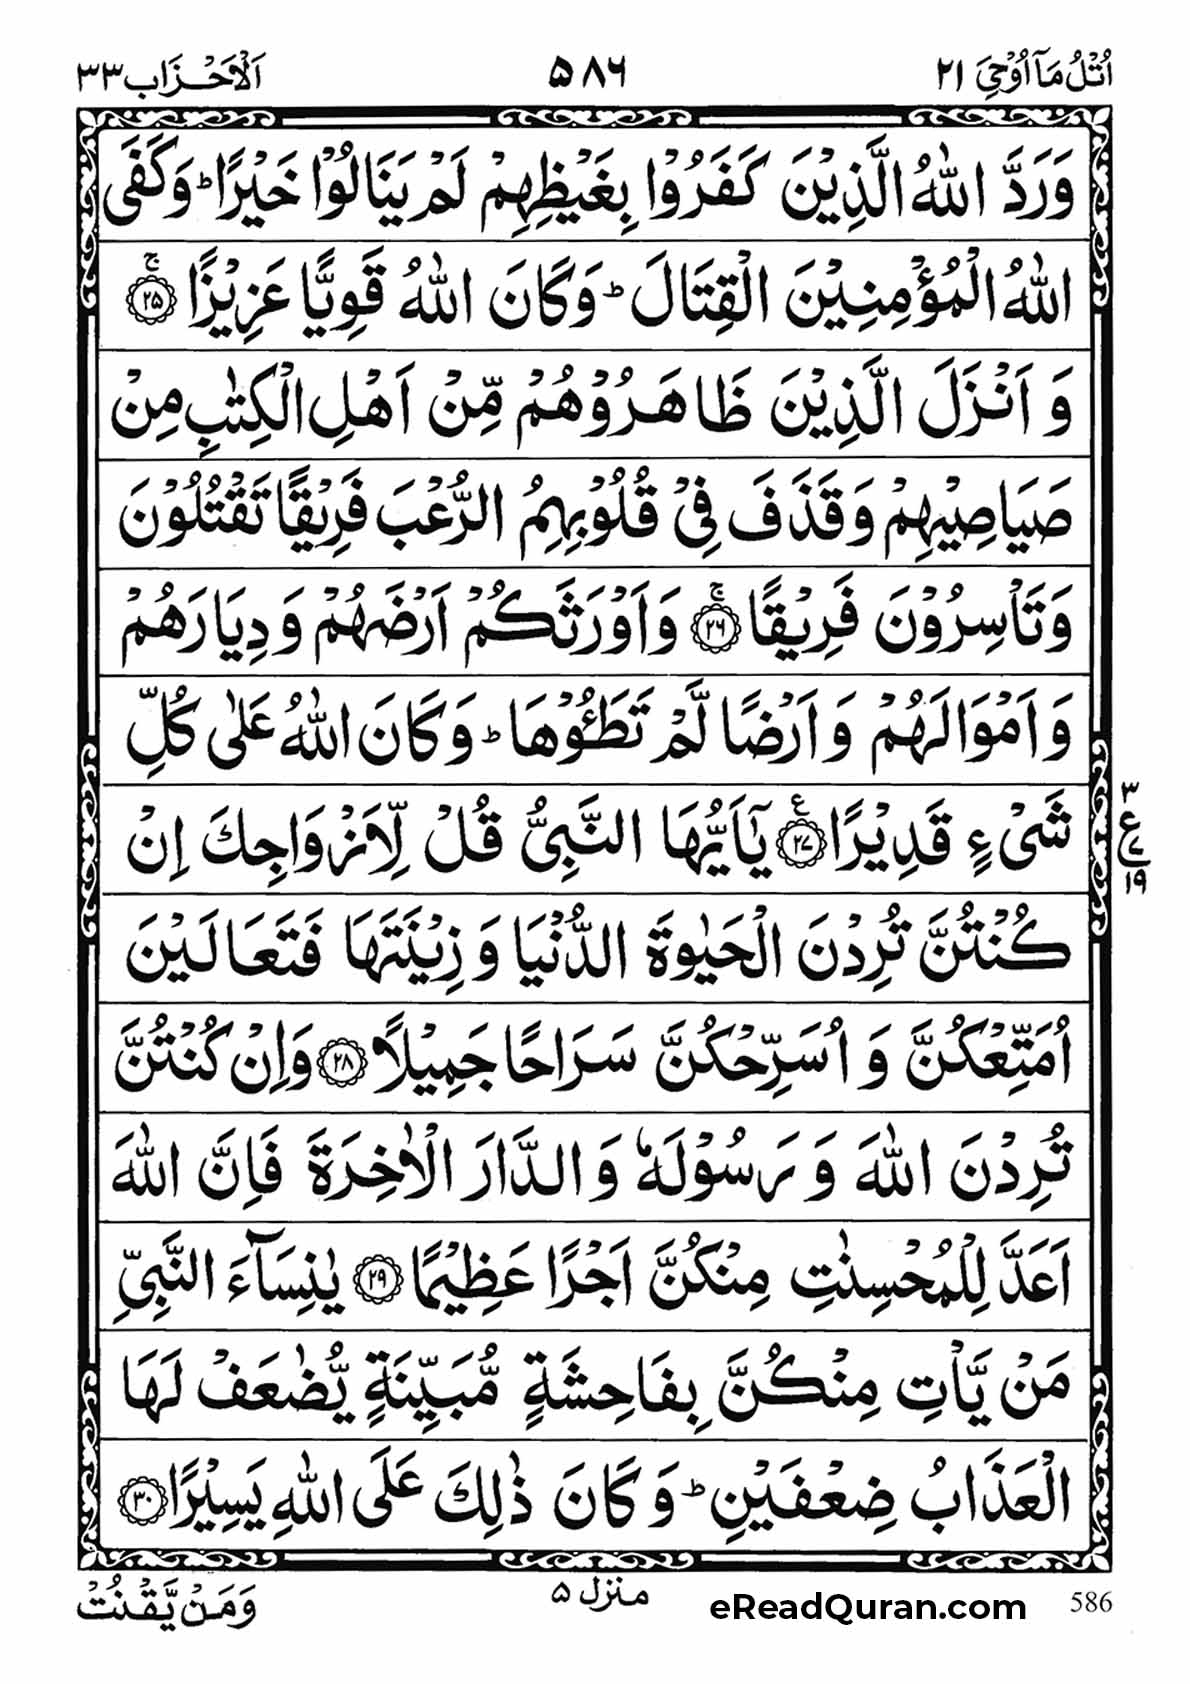 اُتْلُ مَآ اُوْحِيَ ٢١
٥٨٦
اَلْاَحْزَاب ٣٣
وَرَدَّ اللّٰهُ الَّذِيْنَ كَفَرُوْا بِغَيْظِهِمْ لَمْ يَنَالُوْا خَيْرًا ؕ وَكَفَى
اللّٰهُ الْمُؤْمِنِيْنَ الْقِتَالَ ؕ وَكَانَ اللّٰهُ قَوِيًّا عَزِيْزًا ۚ ﴿٢٥﴾
وَ اَنْزَلَ الَّذِيْنَ ظَاهَرُوْهُمْ مِّنْ اَهْلِ الْكِتٰبِ مِنْ
صَيَاصِيْهِمْ وَقَذَفَ فِيْ قُلُوْبِهِمُ الرُّعْبَ فَرِيْقًا تَقْتُلُوْنَ
وَتَاْسِرُوْنَ فَرِيْقًا ۚ ﴿٢٦﴾ وَاَوْرَثَكُمْ اَرْضَهُمْ وَدِيَارَهُمْ
وَاَمْوَالَهُمْ وَاَرْضًا لَّمْ تَطَـُٔوْهَا ؕ وَكَانَ اللّٰهُ عَلٰى كُلِّ
شَيْءٍ قَدِيْرًا ﴿٢٧﴾ ع يٰٓاَيُّهَا النَّبِيُّ قُلْ لِّاَزْوَاجِكَ اِنْ
كُنْتُنَّ تُرِدْنَ الْحَيٰوةَ الدُّنْيَا وَزِيْنَتَهَا فَتَعَالَيْنَ
اُمَتِّعْكُنَّ وَ اُسَرِّحْكُنَّ سَرَاحًا جَمِيْلًا ﴿٢٨﴾ وَاِنْ كُنْتُنَّ
تُرِدْنَ اللّٰهَ وَ رَسُوْلَهٗ وَالدَّارَ الْاٰخِرَةَ فَاِنَّ اللّٰهَ
اَعَدَّ لِلْمُحْسِنٰتِ مِنْكُنَّ اَجْرًا عَظِيْمًا ﴿٢٩﴾ يٰنِسَآءَ النَّبِيِّ
مَنْ يَّاْتِ مِنْكُنَّ بِفَاحِشَةٍ مُّبَيِّنَةٍ يُّضٰعَفْ لَهَا
الْعَذَابُ ضِعْفَيْنِ ؕ وَكَانَ ذٰلِكَ عَلَى اللّٰهِ يَسِيْرًا ﴿٣٠﴾
٣
ع
٧
١٩
وَمَنْ يَّقْنُتْ
منزل ٥
eReadQuran.com
586